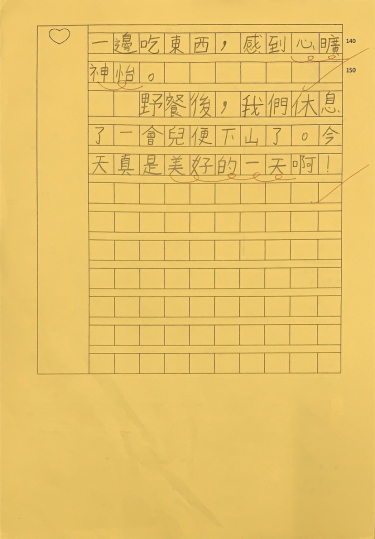 一邊吃東西，感到心曠
140
神怡。
150
野餐後，我們休息
了一會兒便下山了。今
天真是美好的一天啊！